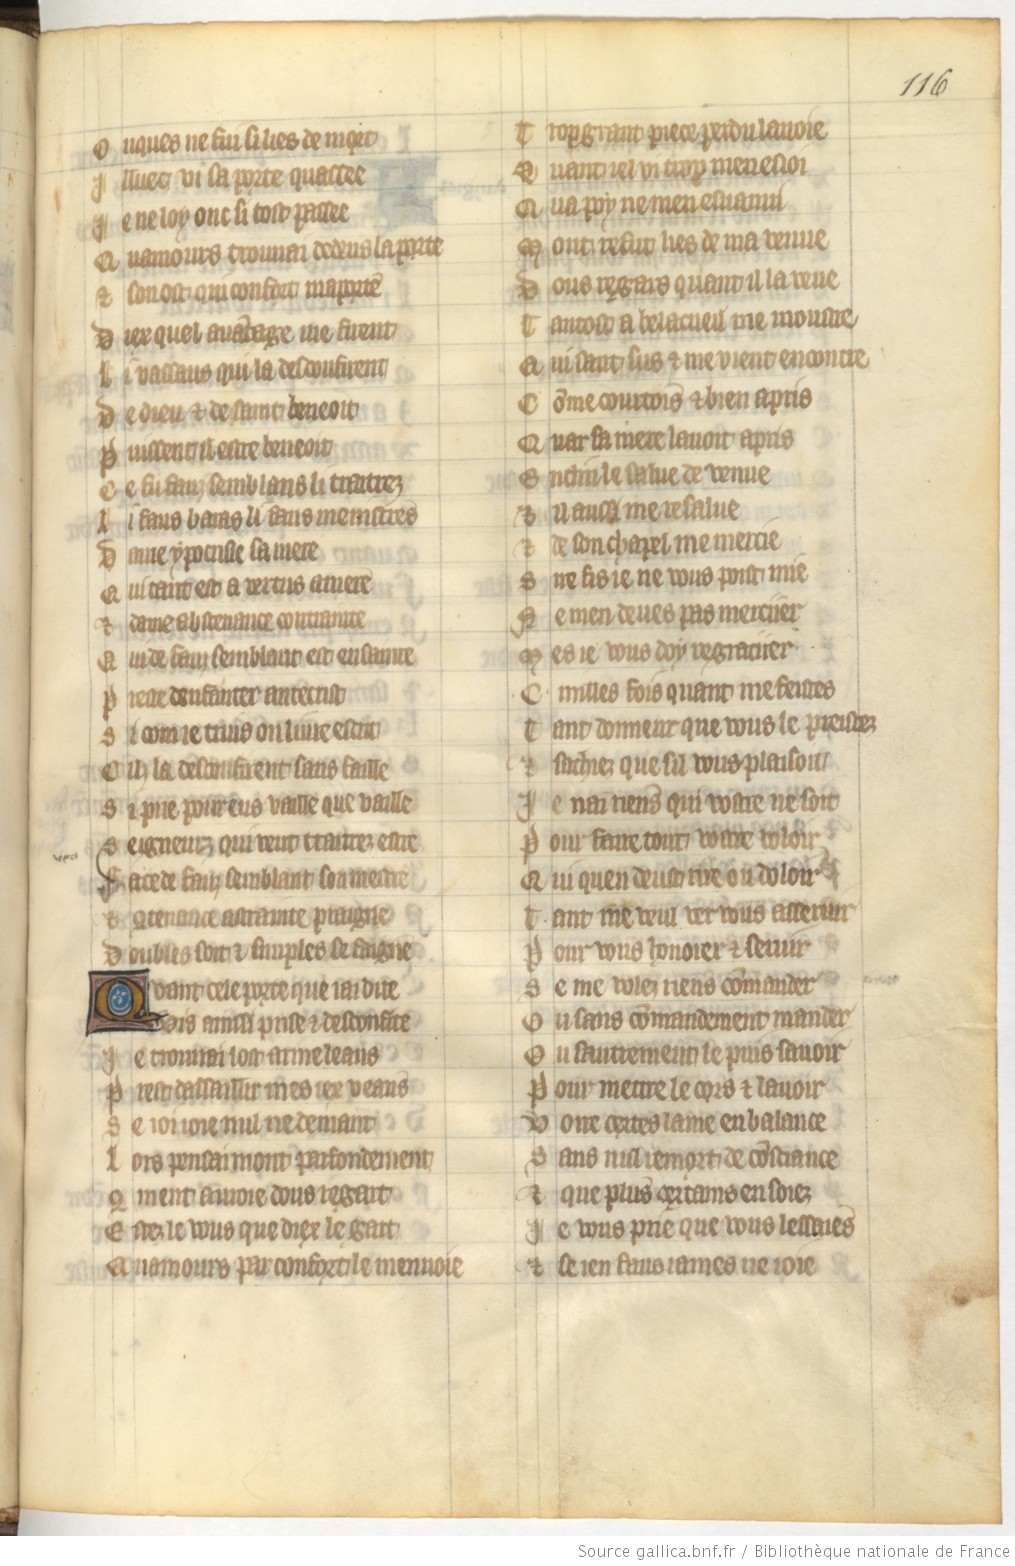 116
O nques ne fui si lies de mot
I lluec vi sa porte quassee
J e ne loy onc si tost passee
Q uamours trouuai dedens la porte
⁊ son ost qui confort maporte
D iex quel auātage me firent
L i vassaus qui la desconfirent
D e dieu ⁊ de saint beneoit
P uissent il estre beneoit
C e fu faus semblans li traitrez
L i faus baras li faus menistres
D ame ypocrisie sa mere
Q ui tant est a vertus amere
⁊ dame abstenance contrainte
Q ui de faus semblant est ensainte
P reste denfanter antecrist
S i com ie truis ou liure escrit
C ilz la desconfirent sans faille
S i prie pour eus vaille que vaille
S eigneurz qui veut traitrez estre
F ace de faus semblant son mestre
⁊ 9tenance astrainte praigne
D oubles soit ⁊ simples se faigne
Q vant cele porte que iai dite
Vois ainssi prise ⁊ desconfite
J e trouuai lost arme leans
P rest dassaillir mes iex veans
S e ioi ioie nul ne demant
L ors pensai mont parfondement
9 ment auroie dous regart
E stez le vous que diex le gart
Q uamours par confort le menuoie
T rop grant piece perdu lauoie
Q uant iel vi trop men esioi
Q ua poy ne men esuanui
M ont refut lies de ma venue
D ous regars quant il la veue
T antost a belacueil me moustre
Q ui saut sus ⁊ me vient encontre
C ōme courtois ⁊ bien apris
Q uar sa mere lauoit apris
E nclin le salue de venue
⁊ il aussi me resalue
⁊ de son chapel me mercie
S ire fis ie ne vous poist mie
N e men deues pas mercier
M es ie vous doy regracier
C milles fois quant me feistes
T ant donneur que vous le preistez
⁊ sachiez que sil vous plaisoit
J e nai riens qui vostre ne soit
P our faire tout vostre voloir
Q ui quen deust rire ou doloir
T ant me veul ver vous asseruir
P our vous honorer ⁊ seruir
S e me volez riens cōmander
O u sans cōmandement mander
O u sautrement le puis sauoir
P our mettre le cors ⁊ lauoir
V oire certes lame en balance
S ans nul remort de cōsciance
⁊ que plus certains en soiez
J e vous prie que vous lessaies
⁊ se ien faus iames ne ioie
Source gallica.bnf.fr / Bibliothèque nationale de France